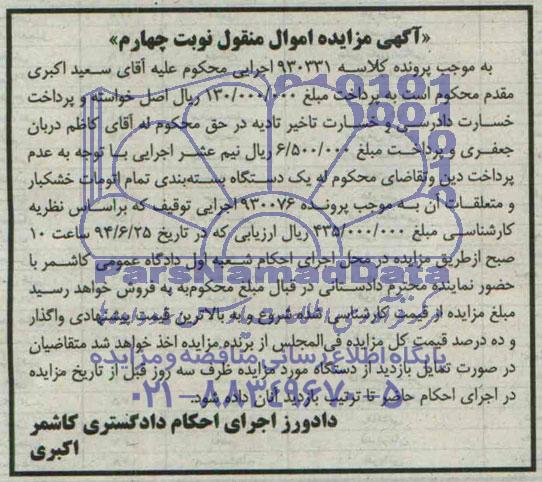 «آگهی مزایده اموال منقول نوبت چهارم»
به موجب پرونده کلاسه ۹۳۰۳۳۱ اجرایی محکوم علیه آقای سعید اکبری
مقدم محکوم است به پرداخت مبلغ ۱۳۰/۰۰۰/۰۰۰ ریال اصل خواسته و پرداخت
خسارت دادرسی و خسارت تاخیر تادیه در حق محکوم له آقای کاظم دربان
جعفری و پرداخت مبلغ ۶/۵۰۰/۰۰۰ ریال نیم عشر اجرایی با توجه به عدم
پرداخت دین وتقاضای محکوم له یک دستگاه بسته‌بندی تمام اتومات خشکبار
و متعلقات آن به موجب پرونده ۹۳۰۰۷۶ اجرایی توقیف که براساس نظریه
کارشناسی مبلغ ۴۳۵/۰۰۰/۰۰۰ ریال ارزیابی که در تاریخ ۹۴/۶/۲۵ ساعت ۱۰
صبح ازطریق مزایده در محل اجرای احکام شعبه اول دادگاه عمومی کاشمر با
حضور نماینده محترم دادستانی در قبال مبلغ محکوم‌به به فروش خواهد رسید
مبلغ مزایده از قیمت کارشناسی شده شروع و به بالاترین قیمت پیشنهادی واگذار
و ده درصد قیمت کل مزایده فی‌المجلس از برنده مزایده اخذ خواهد شد متقاضیان
در صورت تمایل بازدید از دستگاه مورد مزایده ظرف سه روز قبل از تاریخ مزایده
در اجرای احکام حاضر تا ترتیب بازدید آنان داده شود.
دادورز اجرای احکام دادگستری کاشمر
اکبری
ParsNamadData
پایگاه اطلاع رسانی مناقصه و مزایده
۰۲۱-۸۸۳۴۹۶۷۰-۵